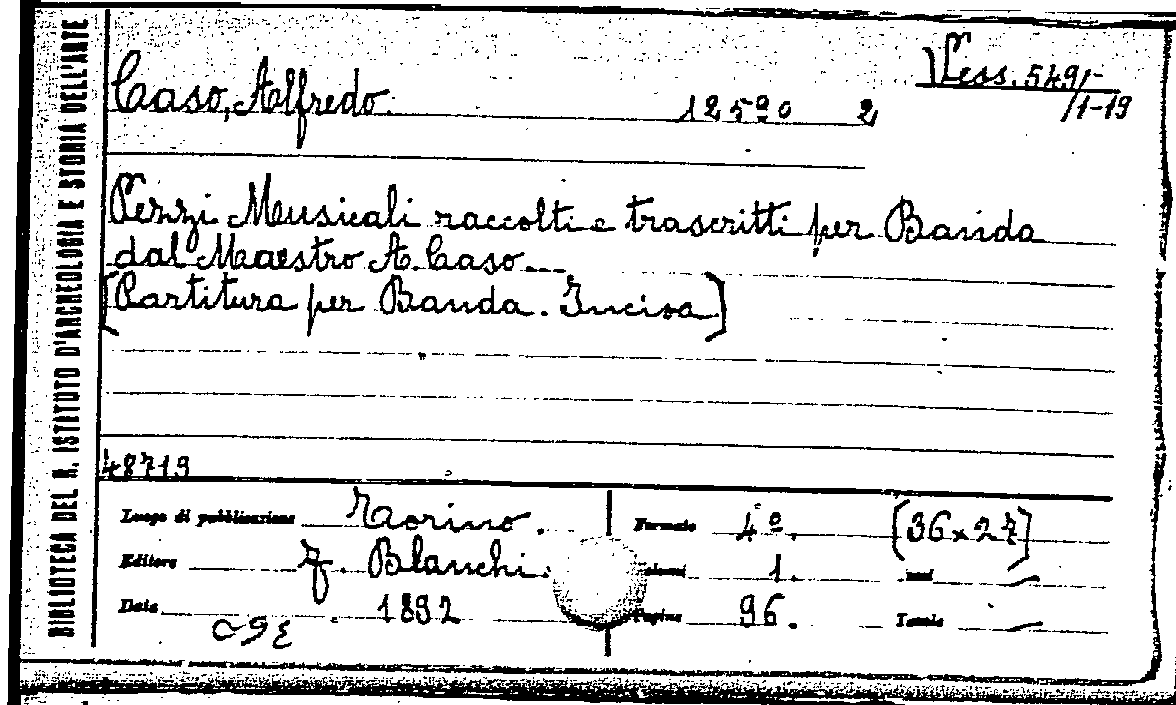 BIBLIOTECA DEL R. ISTITUTO D'ARCHEOLOGIA E STORIA DELL'ARTE
Vess. 549/1-19
Caso, Alfredo. 12590 2
Pezzi Musicali raccolti e trascritti per Banda
dal Maestro A. Caso...
[Partitura per Banda. Incisa]
48719
Luogo di pubblicazione Torino. Formato 4º. [36x27]
Editore F. Blanchi. 1.
Data 1892 Pagine 96. Tavole —